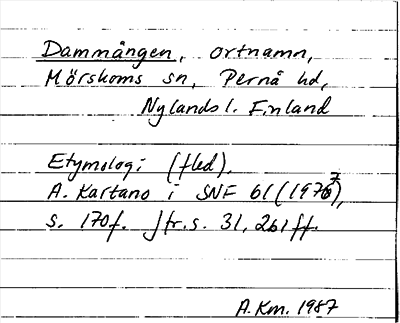 Dammången, ortnamn,
Mörskoms sn, Pernå hd,
Nylands l. Finland
Etymologi (fled).
A. Kartano i SNF 61 (1977),
s. 170f. Jfr. s. 31, 261ff.
A.Km. 1987